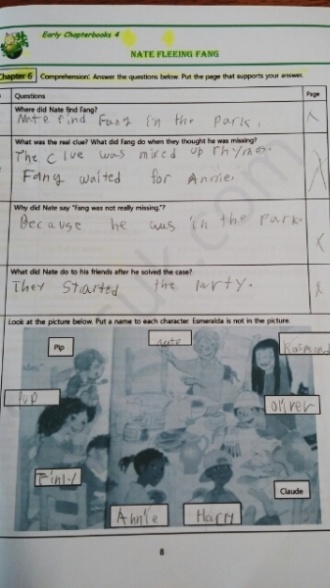 Early Chapterbooks 4
NATE FLEEING FANG
Chapter 6 Comprehension: Answer the questions below. Put the page that supports your answer.
Questions Page
Where did Nate find Fang?
Nate find Fang in the park.
What was the real clue? What did Fang do when they thought he was missing?
The clue was mixed up rhymes.
Fang waited for Annie.
Why did Nate say "Fang was not really missing."?
Because he was in the park.
What did Nate do to his friends after he solved the case?
They started the party.
Look at the picture below. Put a name to each character. Esmeralda is not in the picture.
Pip
nate
oliver
Finly
Annie
Harry
Claude
8